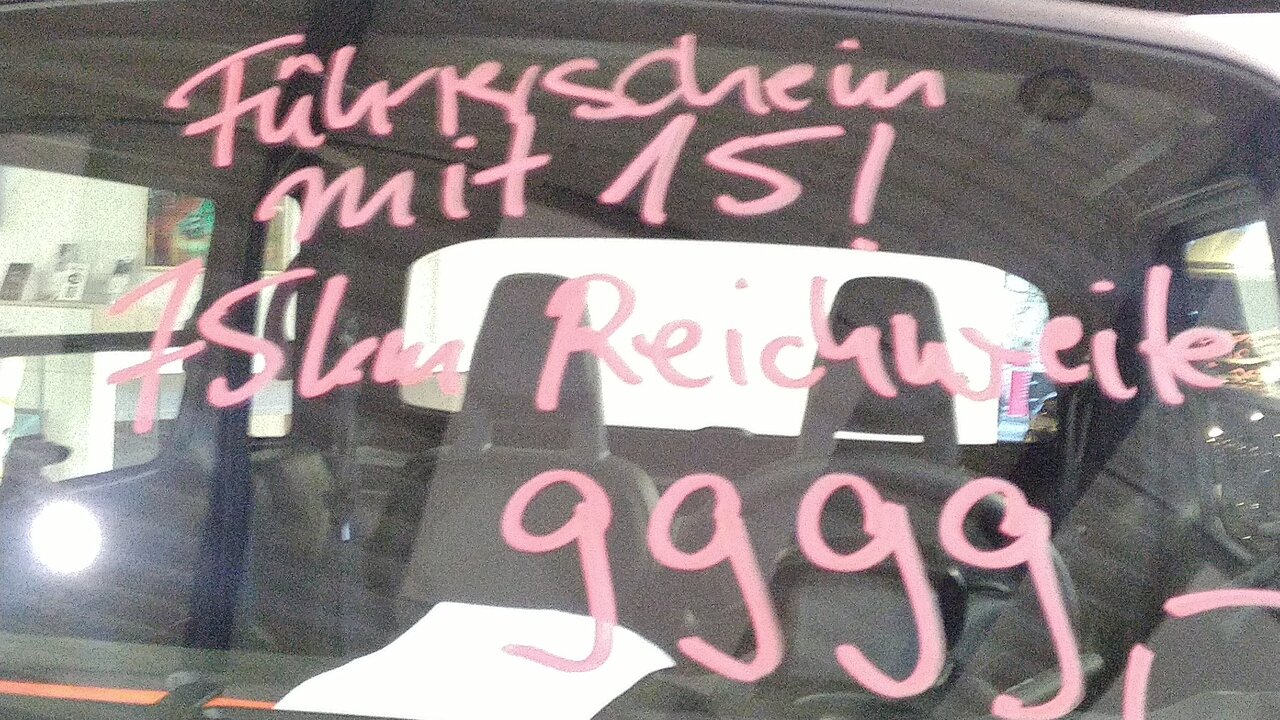 Führerschein
mit 15!
75km Reichweite
9999,-